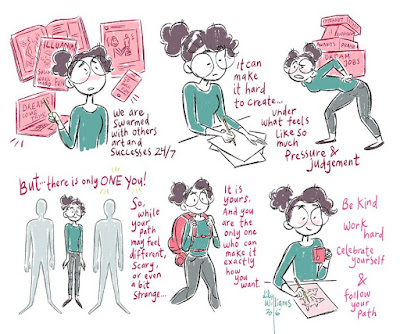 ILLUMIN
DREAM
We are
swarmed
with others
art and
successes 24/7
It can
make it
hard to
create...
under
what feels
like so
much
Pressure &
judgement
INTERNET
AWARDS
DREAM
JOBS
But...there is only ONE YOU!
So,
while
your
path
may feel
different,
scary,
or even
a bit
strange...
It is
yours.
And you
are the
only one
who can
make it
exactly
how you
want.
Be kind
work
hard
Celebrate
yourself
&
follow
your
Path
Lily
Williams
2016